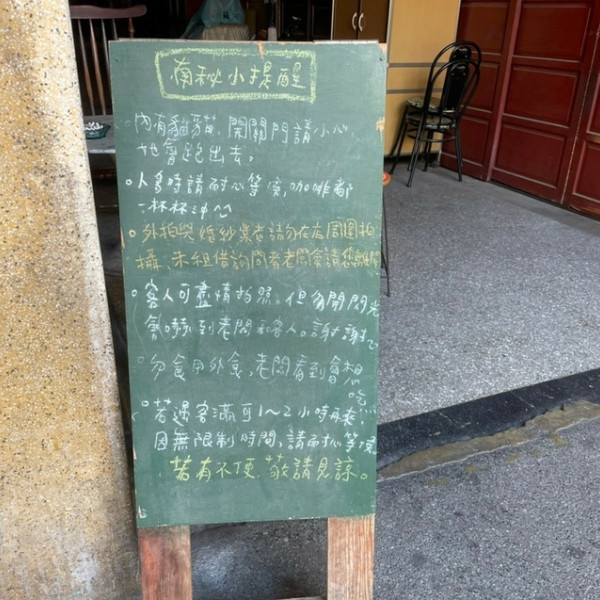 南秘小提醒
。內有貓貓,開關門請小心
地會跑出去。
。人多時請耐心等候,咖啡都
一杯杯沖
。外拍與婚紗業者請勿在店周圍拍
攝,未租借詢問者老闆會請您離開
。客人可盡情拍照。但勿開閃光
會嚇到老闆和客人。謝謝
。勿食用外食,老闆看到會想
吃
。若遇客滿可1~2小時再來,
因無限制時間,請耐心等候
若有不便 敬請見諒。